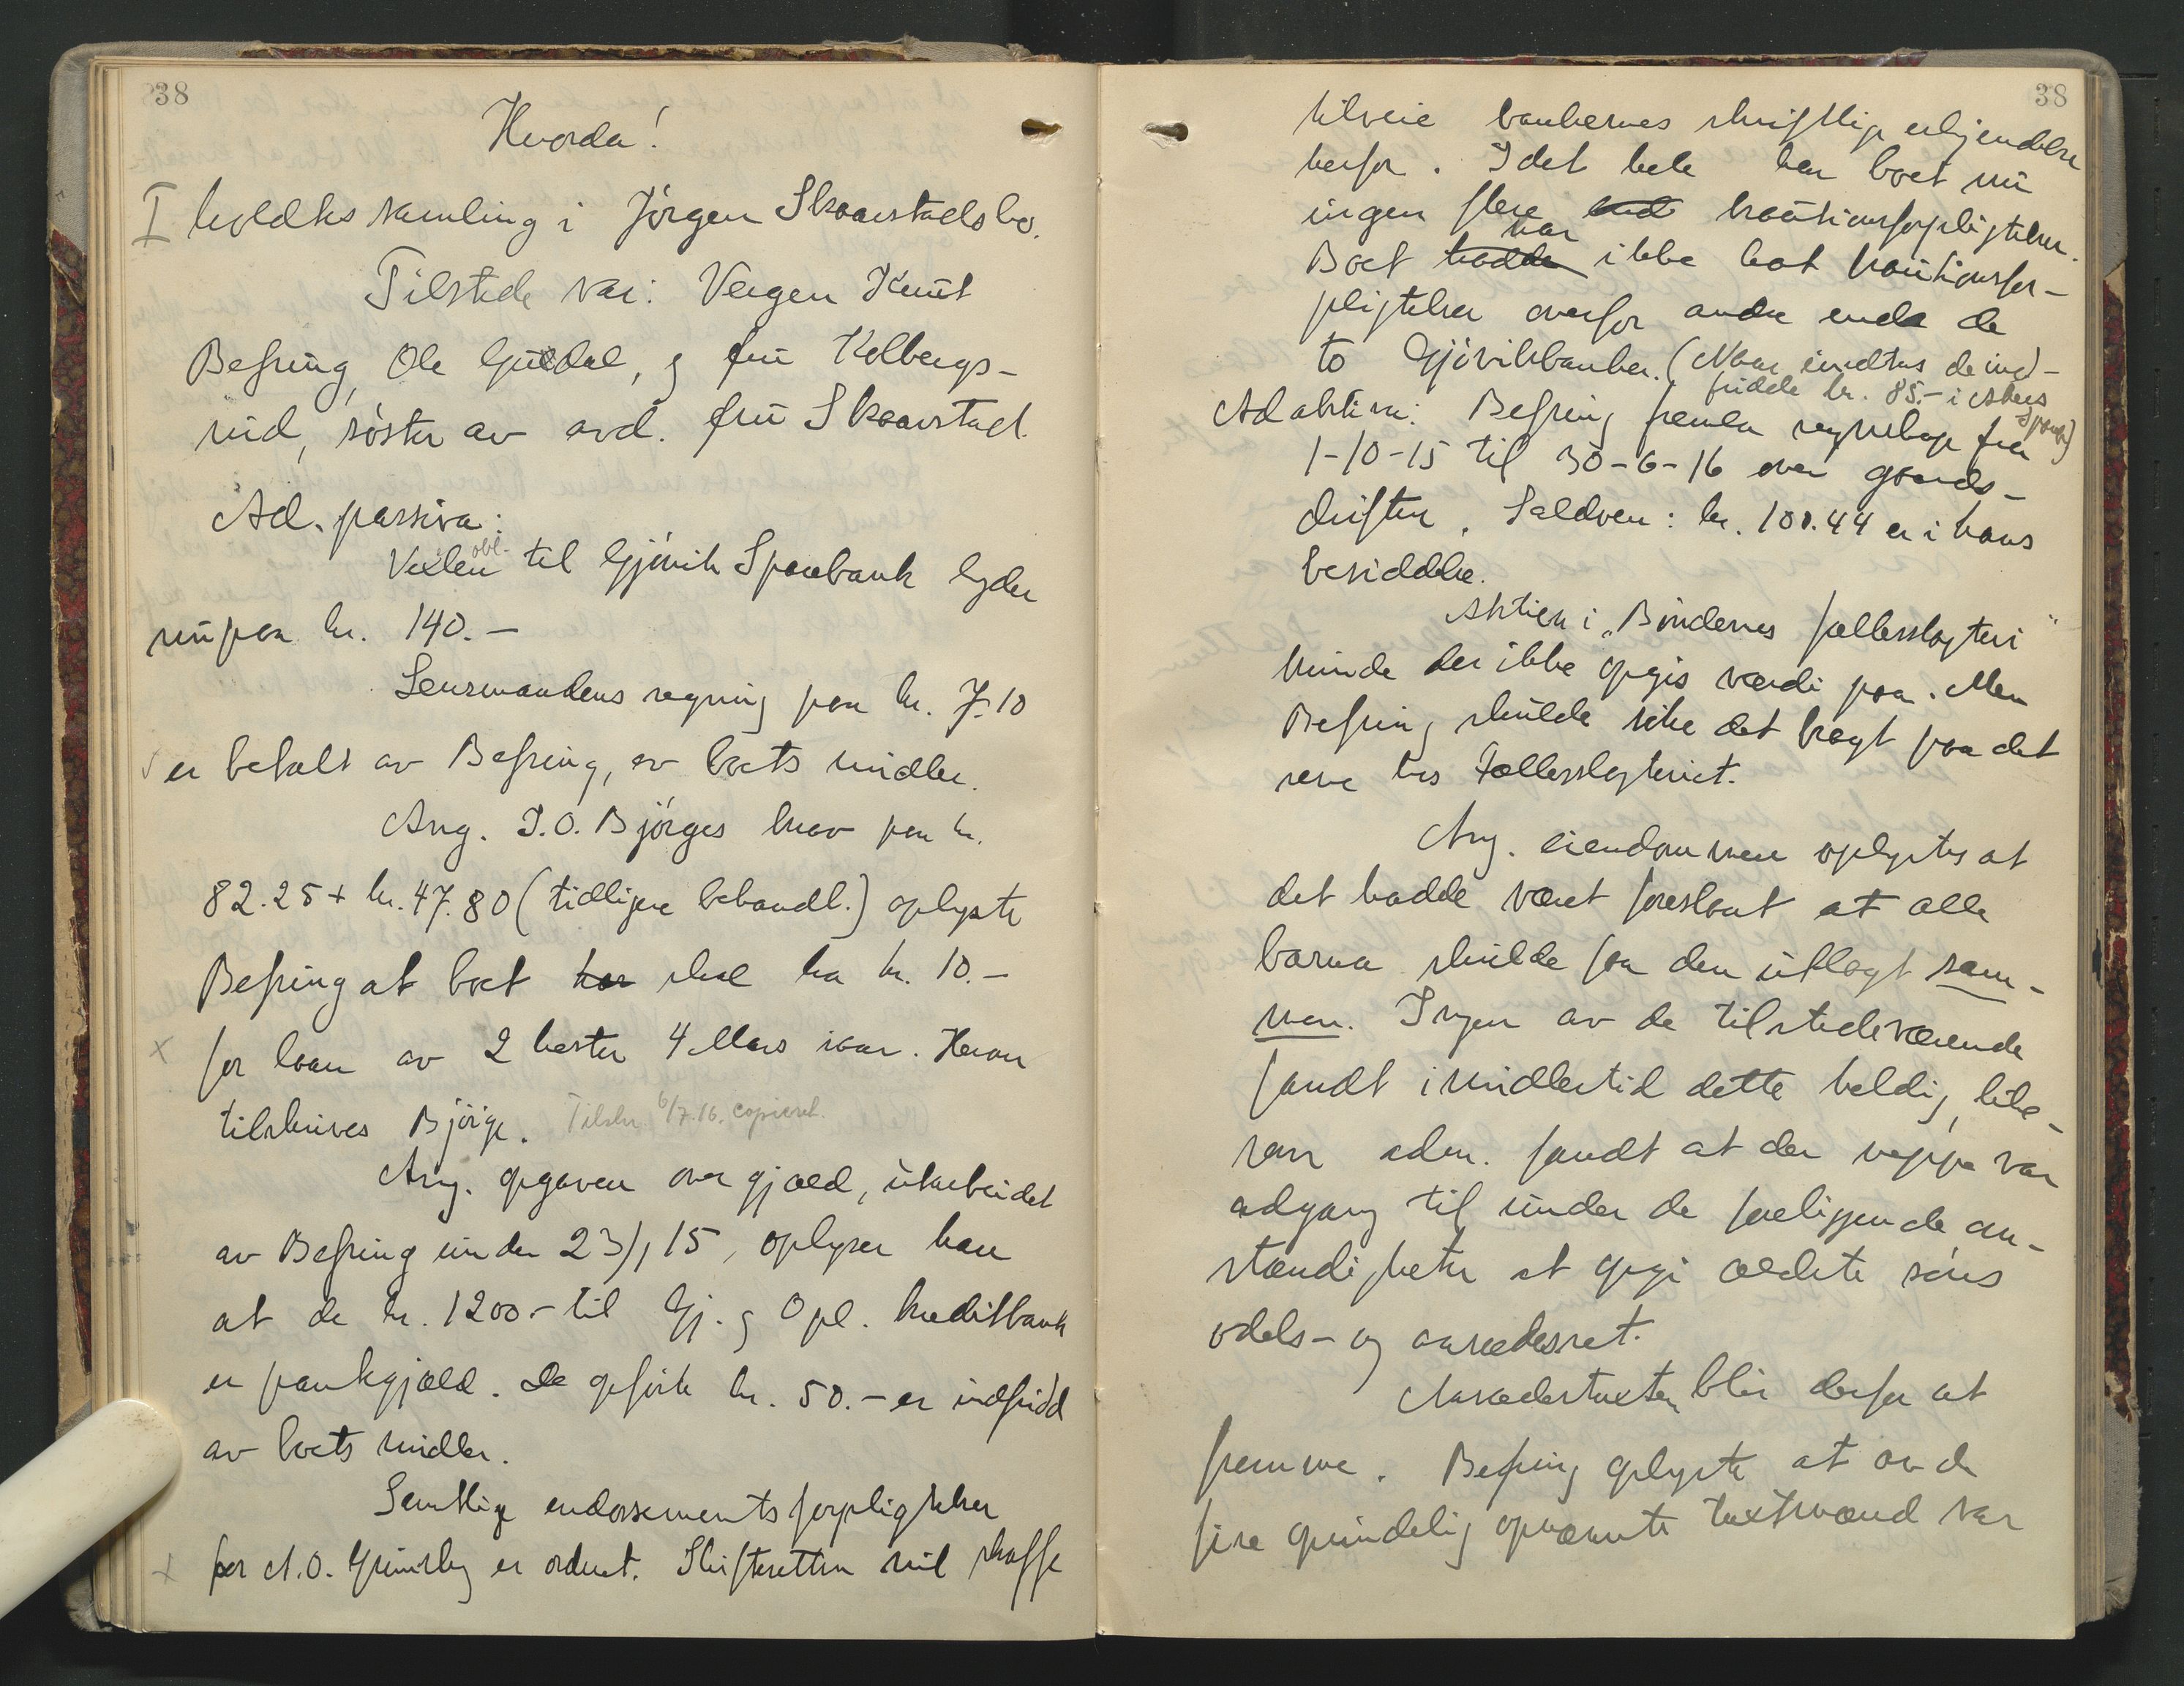 38
Hvorda!
I holdtes samling i Jörgen Skaarstadsbo.
Tilstede var: Vergen Knut
Befring, Ole Guldal, og fru Kolbergs-
rud, söster av avd. fru Skaarstad.
Ad. passiva:
obl.
Vexlen til Gjövik Sparebank lyder
nu paa kr. 140.-
Lensmandens regning paa kr. 7.10
er betalt av Befring, av boets midler.
Ang. J.O. Björges krav paa kr.
82.25 + kr. 47.80 (tidligere behandl.) oplyste
Befring at boet har skal ha kr. 10.-
x for laan av 2 hester 4 Mars iaar. Herom
tilskrives Björge. Tilskr. 6/7.16. copieret.
Ang. opgaven over gjæld, utarbeidet
av Befring under 23/1 15, oplyser han
at de kr. 1200.- til Gj. og Opl. kreditbank
er pantegjæld. De opförte kr. 50.- er indfridd
av boets midler.
Samtlige endossementsforpligtelser
x for A.O. Grimsby er ordnet. Skifteretten vil skaffe
38
tilveie bankernes skriftlige erkjendelse
herfor. I det hele har boet nu
ingen flere end kautionsforpligtelser.
har
Boet hadde ikke hat kautionsfor-
pligtelser overfor andre end de
to Gjövikbanker. (Naar undtas de ind-
fridde kr. 85.- i
Ad aktiva: Befring fremla regnskap fra
1-10-15 til 30-6-16 over gaards-
driften. Saldoen: kr. 100.44 er i hans
besiddelse.
Aktien i "Böndernes fællesslagteri"
kunde der ikke opgis værdi paa. Men
Befring skulde söke det bragt paa det
rene hos Fællesslagteriet.
Ang. eiendommen oplystes at
det hadde været foreslaat at alle
barna skulde faa den utlagt sam-
men. Ingen av de tilstedeværende
fandt imidlertid dette heldig, like-
som adm. fandt at der neppe var
adgang til under de foreliggende om-
stændigheter at opgi ældste söns
odels- og aasædesret.
Aasædestaxten blir derfor at
fremme. Befring oplyste at av de
fire oprindelig opnævnte taxtmænd var